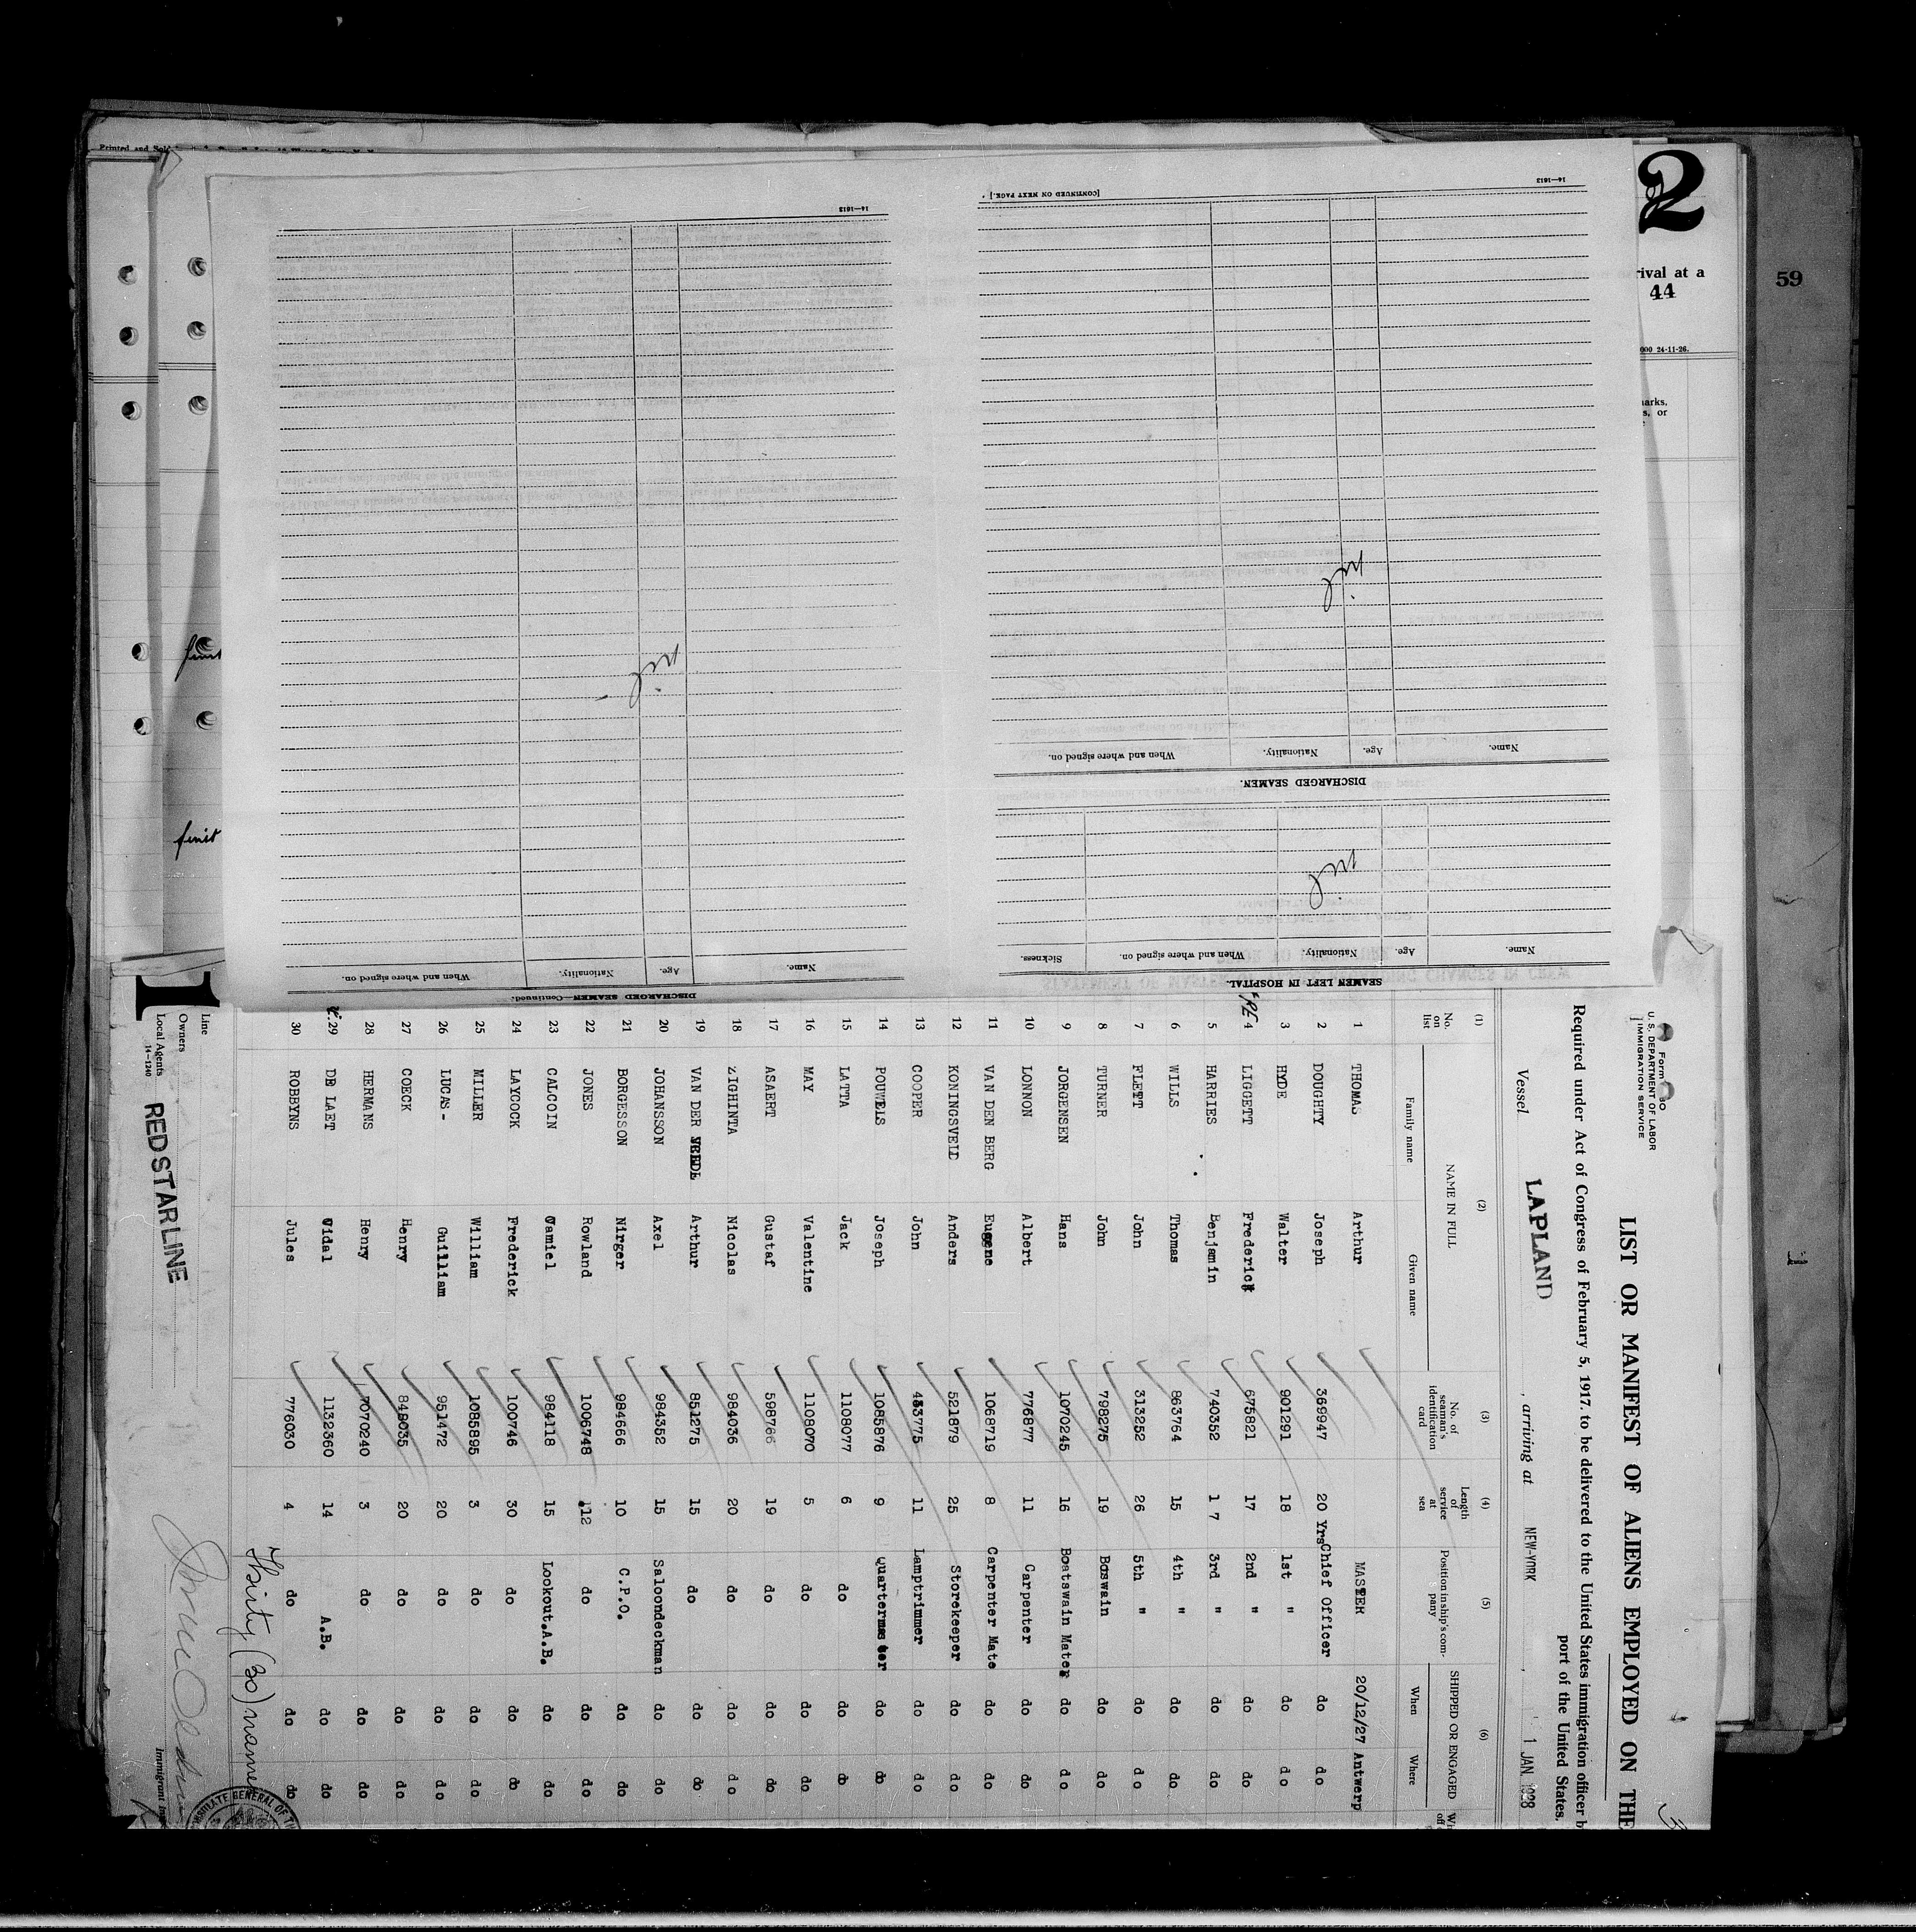 Printed and Sold
2
rival at a
44
59
000 24-11-26.
arks,
s, or
14—1613
[CONTINUED ON NEXT PAGE.]
14—1613
nil
nil
Name.
Age.
Nationality.
When and where signed on.
DISCHARGED SEAMEN.
nil
Name.
Age.
Nationality.
When and where signed on.
Sickness.
SEAMEN LEFT IN HOSPITAL.
Name.
Age.
Nationality.
When and where signed on.
DISCHARGED SEAMEN—Continued.
U. S. DEPARTMENT OF LABOR
IMMIGRATION SERVICE
LIST OR MANIFEST OF ALIENS EMPLOYED ON THE
Required under Act of Congress of February 5, 1917, to be delivered to the United States immigration officer b
port of the United States.
Vessel LAPLAND, arriving at NEW-YORK, 1 JAN 1928
(1) (2) (3) (4) (5) (6)
No. on list NAME IN FULL Family name Given name No. of seaman's identification card Length of service at sea Position in ship's company SHIPPED OR ENGAGED When Where
1 THOMAS Arthur MASTER 20/12/27 Antwerp
2 DOUGHTY Joseph 369947 20 Yrs Chief Officer do do
3 HYDE Walter 901291 18 1st " do do
4 LIGGETT Frederick 675821 17 2nd " do do
5 HARRIES Benjamin 740352 17 3rd " do do
6 WILLS Thomas 863764 15 4th " do do
7 FLETT John 313252 26 5th " do do
8 TURNER John 798275 19 Boswain do do
9 JORGENSEN Hans 1070245 16 Boatswain Mater do do
10 LONNON Albert 776877 11 Carpenter do do
11 VAN DEN BERG Eugene 1068719 8 Carpenter Mate do do
12 KONINGSVELD Anders 521879 25 Storekeeper do do
13 COOPER John 453775 11 Lamptrimmer do do
14 POUWELS Joseph 1085876 9 Quartermaster do do
15 LATTA Jack 1108077 6 do do do
16 MAY Valentine 1108070 5 do do do
17 ASAERT Gustaf 598766 19 do do do
18 ZIGHINTA Nicolas 984036 20 do do do
19 VAN DER Arthur 851275 15 do do do
20 JOHANSSON Axel 984352 15 Saloondeckman do do
21 BORGESSON Nirger 984666 10 C.P.O. do do
22 JONES Rowland 1006748 12 do do do
23 CALCOIN Camiel 984118 15 Lookout.A.B. do do
24 LAYCOCK Frederick 100746 30 do do do
25 MILLER William 1085895 3 do do do
26 LUCAS- Guilliam 951472 20 do do do
27 COECK Henry 848035 20 do do do
28 HERMANS Henry 7070240 3 do do do
29 DE LAET Vidal 1132360 14 A.B. do do
30 ROBBYNS Jules 776030 4 do do do
Thirty (30) names
Line
Owners
Local Agents
14—1240
RED STAR LINE
1